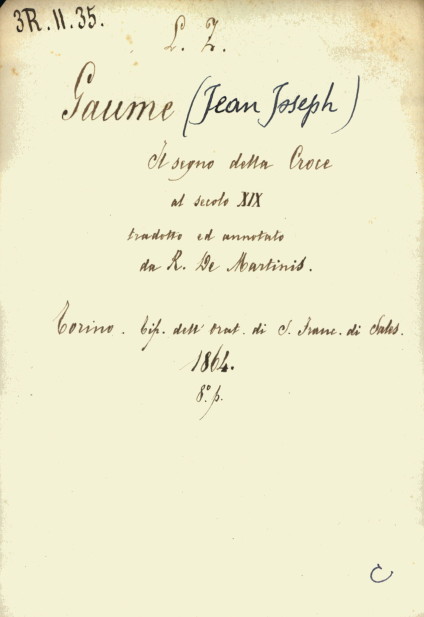 3R.11.35.
L. Z.
Gaume (Jean Joseph)
Il segno della Croce
al secolo XIX
tradotto ed annotato
da R. De Martinis.
Torino. Tip. dell' Orat. di S. Franc. di Sales.
1864.
8.° p.
C